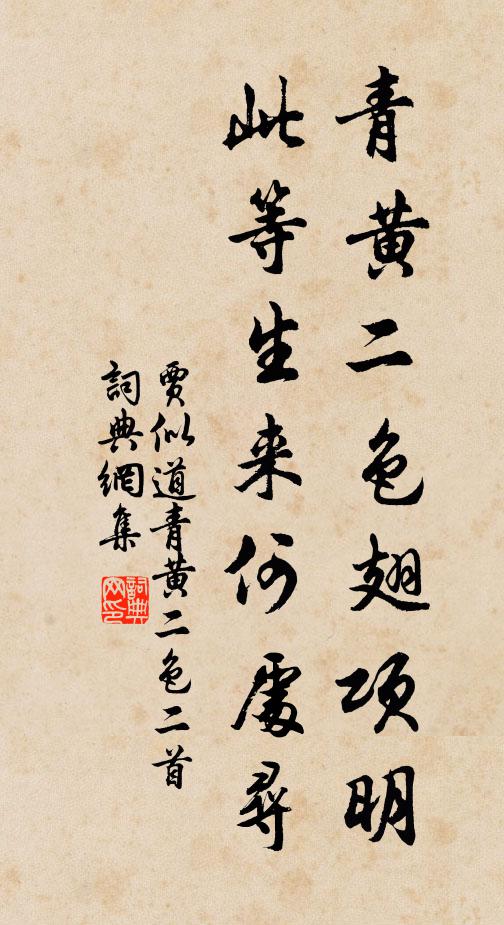 青黄二色翅项明
此等生来何處尋
賈似道青黄二色二首
詞典網集
詞典網印